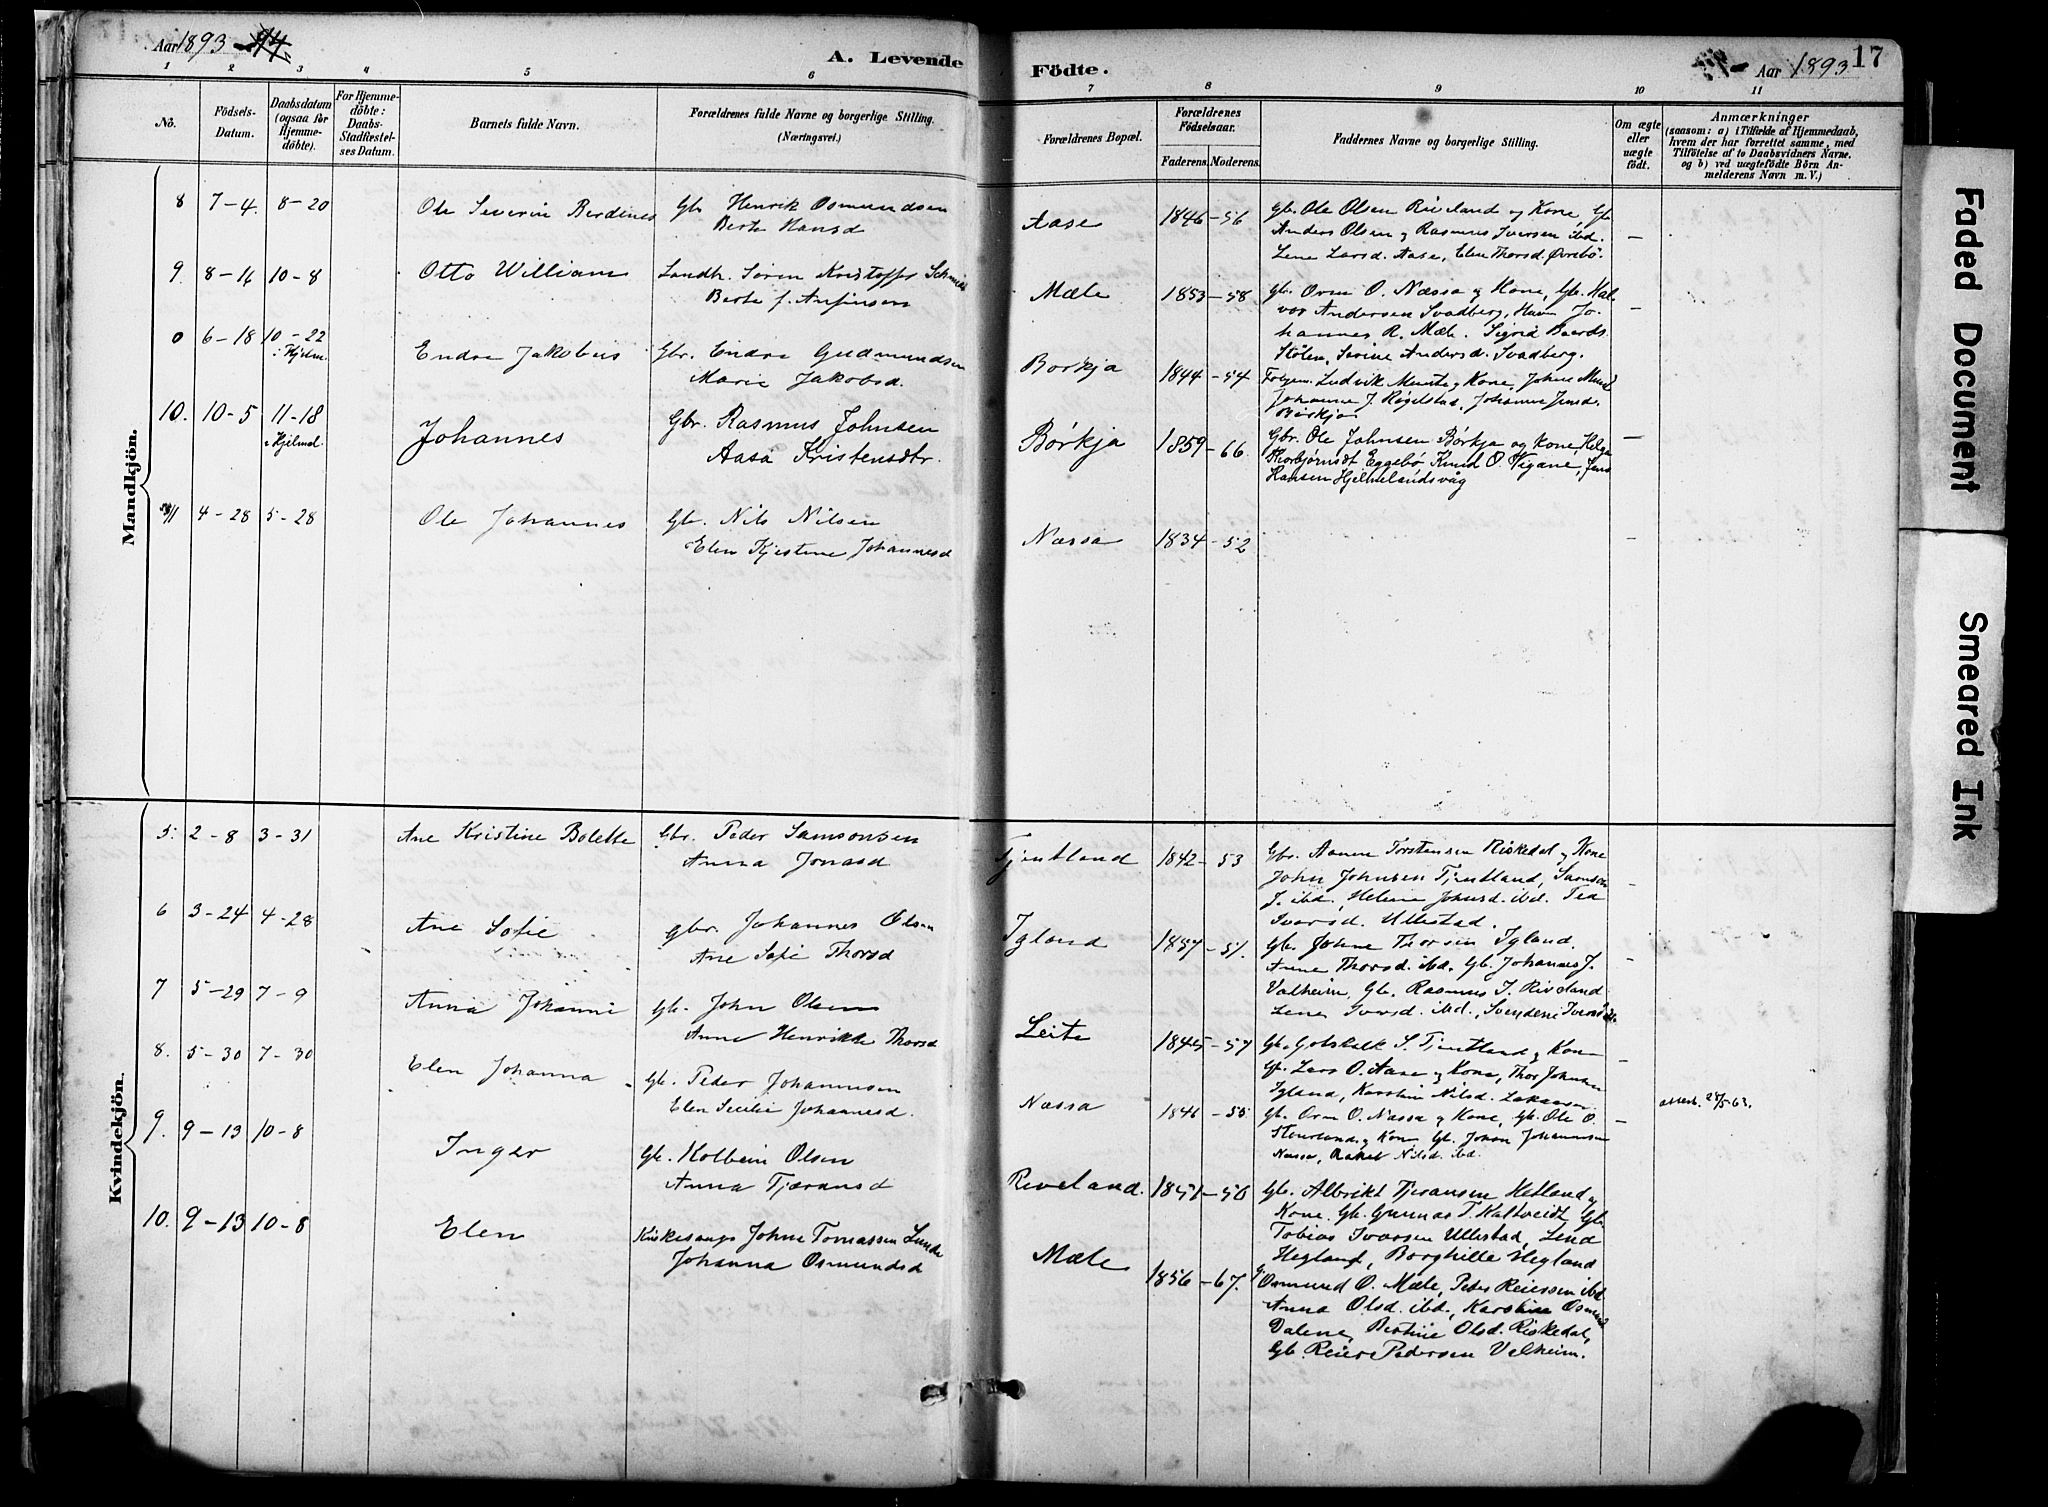 Aar 1893 - 94.
A. Levende
Födte.
Aar 1893
17
1 2 3 4 5 6 7 8 9 10 11
No.
Födsels-
Datum.
Daabsdatum
(ogsaa for
Hjemme-
döbte).
For Hjemme-
döbte:
Daabs-
Stadfæstel-
ses Datum.
Barnets fulde Navn.
Forældrenes fulde Navne og borgerlige Stilling.
(Næringsvei.)
Forældrenes Bopæl.
Forældrenes
Födselsaar.
Faderens. Moderens.
Faddernes Navne og borgerlige Stilling.
Om ægte
eller
uægte
födt.
Anmærkninger
(saasom: a) i Tilfælde af Hjemmedaab,
hvem der har forrettet samme, med
Tilföielse af to Daabsvidners Navne.
og b) ved uægtefödte Börn An-
melderens Navn m. V.)
Mandkjön.
8 7-4. 8-20 Ole Severin Berdenes Gb. Henrik Osmundsen
Berte Hansd
Aase 1846-56
Gb. Ole Olsen Riveland og Kone, Gb.
Anders Olsen og Rasmus Iversen ibd.
Lene Larsd. Aase, Elen Thorsd. Øvrebö. –
9. 8-14 10-8 Otto William Landh. Sören Kristoffer Schmidt
Berte f. Anfinsen
Mæle 1853-58
Gb. Orm O. Næssa og Kone, Gb. Hal-
vor Andersen Svadberg, Huum Jo-
hannes R. Mæle. Sigrid Baards.
Stölen, Serine Andersd. Svadberg. –
0 6-18 10-22
i Hjelm.
Endre Jakobus Gbr. Endre Gudmundsen
Marie Jakobsd.
Borkja 1844-54
Ludvik Munte og Kone, Johne
Johanne J. Rögelstad, Johanne Jensd.
Börkja
10. 10-5 11-18
i Hjelmd.
Johannes Gbr. Rasmus Johnsen
Aasa Kristensdtr.
Børkja 1859-66.
Gbr. Ole Johnsen Børkja og Kone, Helga
Thorbjörnsdt Eggebø, Knud O. Vigane, Jens
Hansen Hjelmelandsvåg –
11 4-28 5-28 Ole Johannes Gb. Nils Nilsen
Elen Kjestine Johannesd
Næssa 1834-52 –
Kvindekjön.
5. 2-8 3-31 Ane Kristine Bolette Gbr. Peder Samsonsen
Anna Jonasd
Tjentland 1842-53
Gbr. Aanen Torstensen Riskedal og Kone
John Johnsen Tjentland, Samson
J. ibd, Helene Johnsd. ibd. Tea
Ivarsd. Ullestad. –
6 3-24 4-28 Ane Sofie Gbr. Johannes Olsen
Ane Sofie Thorsd
Igland 1857-51.
Gb. Johne Thorsen Igland.
Anne Thorsd. ibd. Gb. Johannes J.
Valheim, Gb. Rasmus I. Riveland
Lene Ivarsd. ibd., –
7 5-29 7-9 Anna Johanne Gb. John Olsen
Anne Henrikke Thorsd
Leite 1845-57
Gb. Gotskalk S. Tjentland og Kone
Gb. Lars O. Aase og Kone, Thor Johnsen
Igland, Karstine Nilsd. –
8. 5-30 7-30 Elen Johanna Gb. Peder Johannesen
Elen Secilie Johannesd.
Næssa 1846-55
Gb. Orm O. Næssa og Kone, Gb. Ole O.
og Kone, Gb. Johan Johannesen
Næssa, Rakel Nilsd. ibd. –
attest. 28/5-63.
9. 9-13 10-8 Inger Gb. Kolbein Olsen
Anna Tjæransd
Riveland. 1851-50
Gb. Albrikt Tjeransen Hetland og
Kone. Gb. Gunnar T. Kaltveidt, Gb.
Tobias Ivarsen Ullestad, Lina
Hegland, Borghille Hegland
10. 9-13 10-8 Elen Kirkesangr Johne Tomassen Lunde
Johanna Osmundsd
Mæle 1856-67.
Gb. Osmund O. Mæle, Peder Reiersen ibd
Anna Olsd. ibd, Karstine Osmund
Dalene, Bertine Olsd. Riskedal,
Gb. Reier Pedersen Velheim.
Faded Document
Smeared Ink